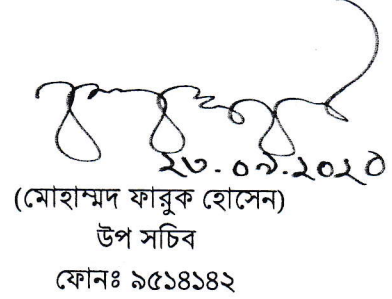 ২৩.০৯.২০২০
(মোহাম্মদ ফারুক হোসেন)
উপ সচিব
ফোনঃ ৯৫১৪১৪২